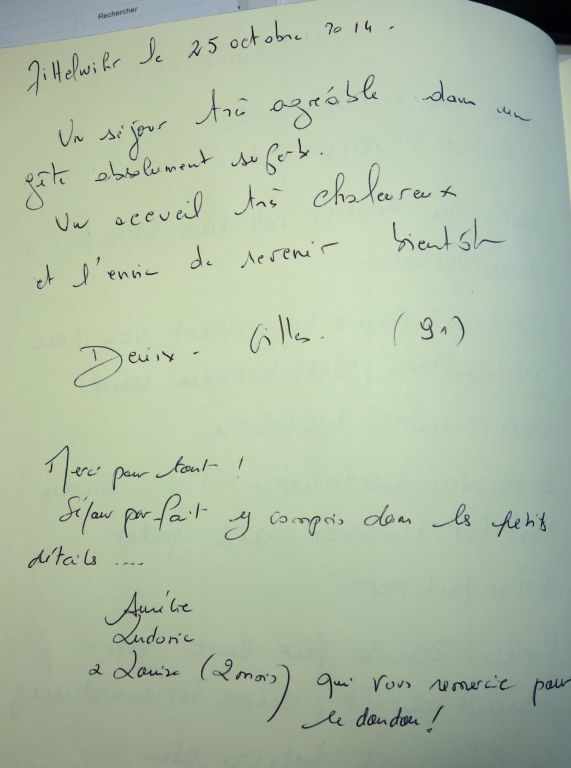 Rechercher
Zittelwihr le 25 octobre 2014.
Un séjour très agréable dans un
gîte absolument superbe.
Un accueil très chaleureux
et l'envie de revenir bientôt
Denis - Gilles. (91)
Merci pour tout !
Séjour parfait y compris dans les petits
détails ....
Aurélie
Ludovic
& Louise (2 mois) qui vous remercie pour
le doudou !